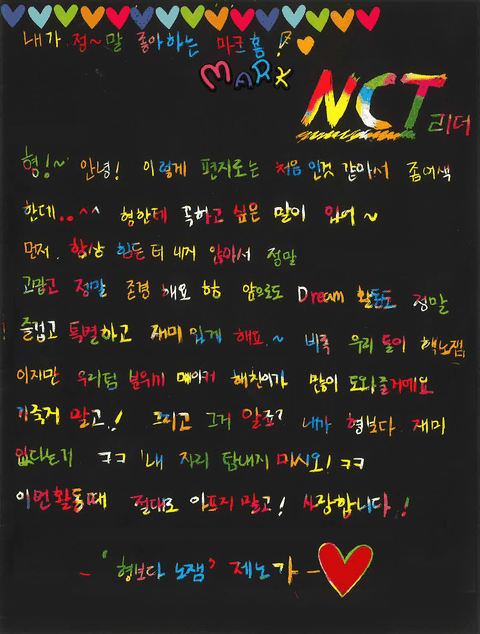 내가 정~말 좋아하는 마크형!
MARK
NCT 리더
형!~ 안녕! 이렇게 편지로는 처음인것 같아서 좀어색
한데..^^ 형한테 꼭하고 싶은 말이 있어~
먼저. 항상 힘든 티 내지 않아서 정말
고맙고 정말 존경해요 형 앞으로도 Dream 활동도 정말
즐겁고 특별하고 재미있게 해요.~ 비록 우리 둘이 핵노잼
이지만 우리팀 분위기 메이커 해찬이가 많이 도와줄거예요
기죽지 말고! 그리고 그거 알죠? 내가 형보다 재미
없다는거 ㅋㅋ '내 자리 탐내지 마시오! ㅋㅋ
이번활동때 절대로 아프지 말고! 사랑합니다!
- '형보다 노잼' 제노가 -